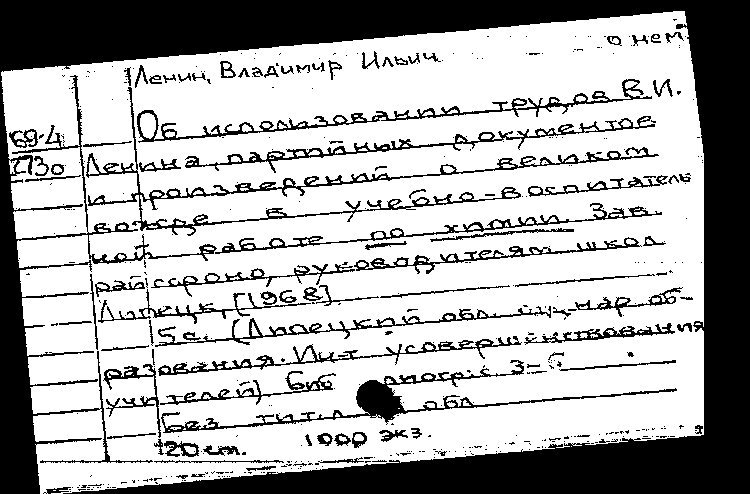 о нем
Ленин, Владимир Ильич
69-4
273о
Об использовании трудов В.И.
Ленина, партийных документов
и произведений о великом
вожде в учебно-воспитатель
ной работе по химии. Зав.
рай гороно, руководителям школ
Липецк, [1968]
5 с. (Липецкий обл. нар об-
разования. Ин-т усовершенствования
учителей) Библиогр: с 3-5
Без тит. л обл
20 см. 1000 экз.